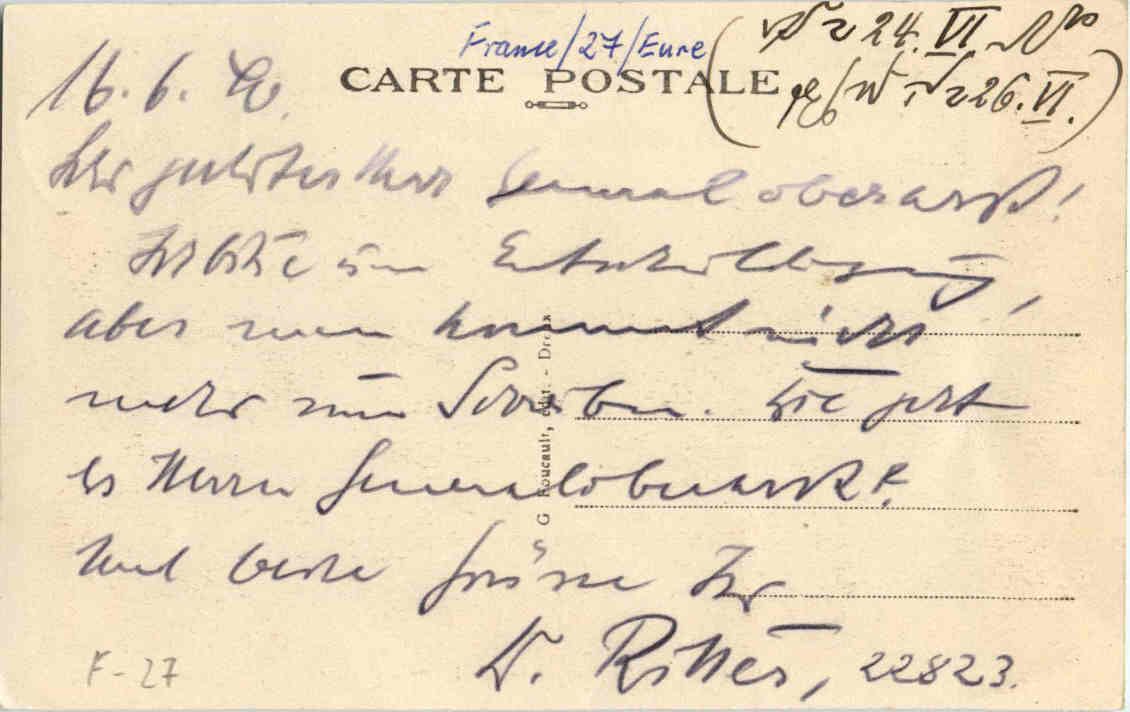 France/27/Eure
24. VI
26. VI.
CARTE POSTALE
16. 6. 40.
Sehr geehrter Herr Generaloberarzt!
Ich bitte um Entschuldigung,
aber man kommt nicht
mehr zum Schreiben. Wie geht
es Herrn Generaloberarzt?
Und beste Grüsse Ihr
Dr. Ritter, 22823.
F-27
G Foucault, édit. - Dreux